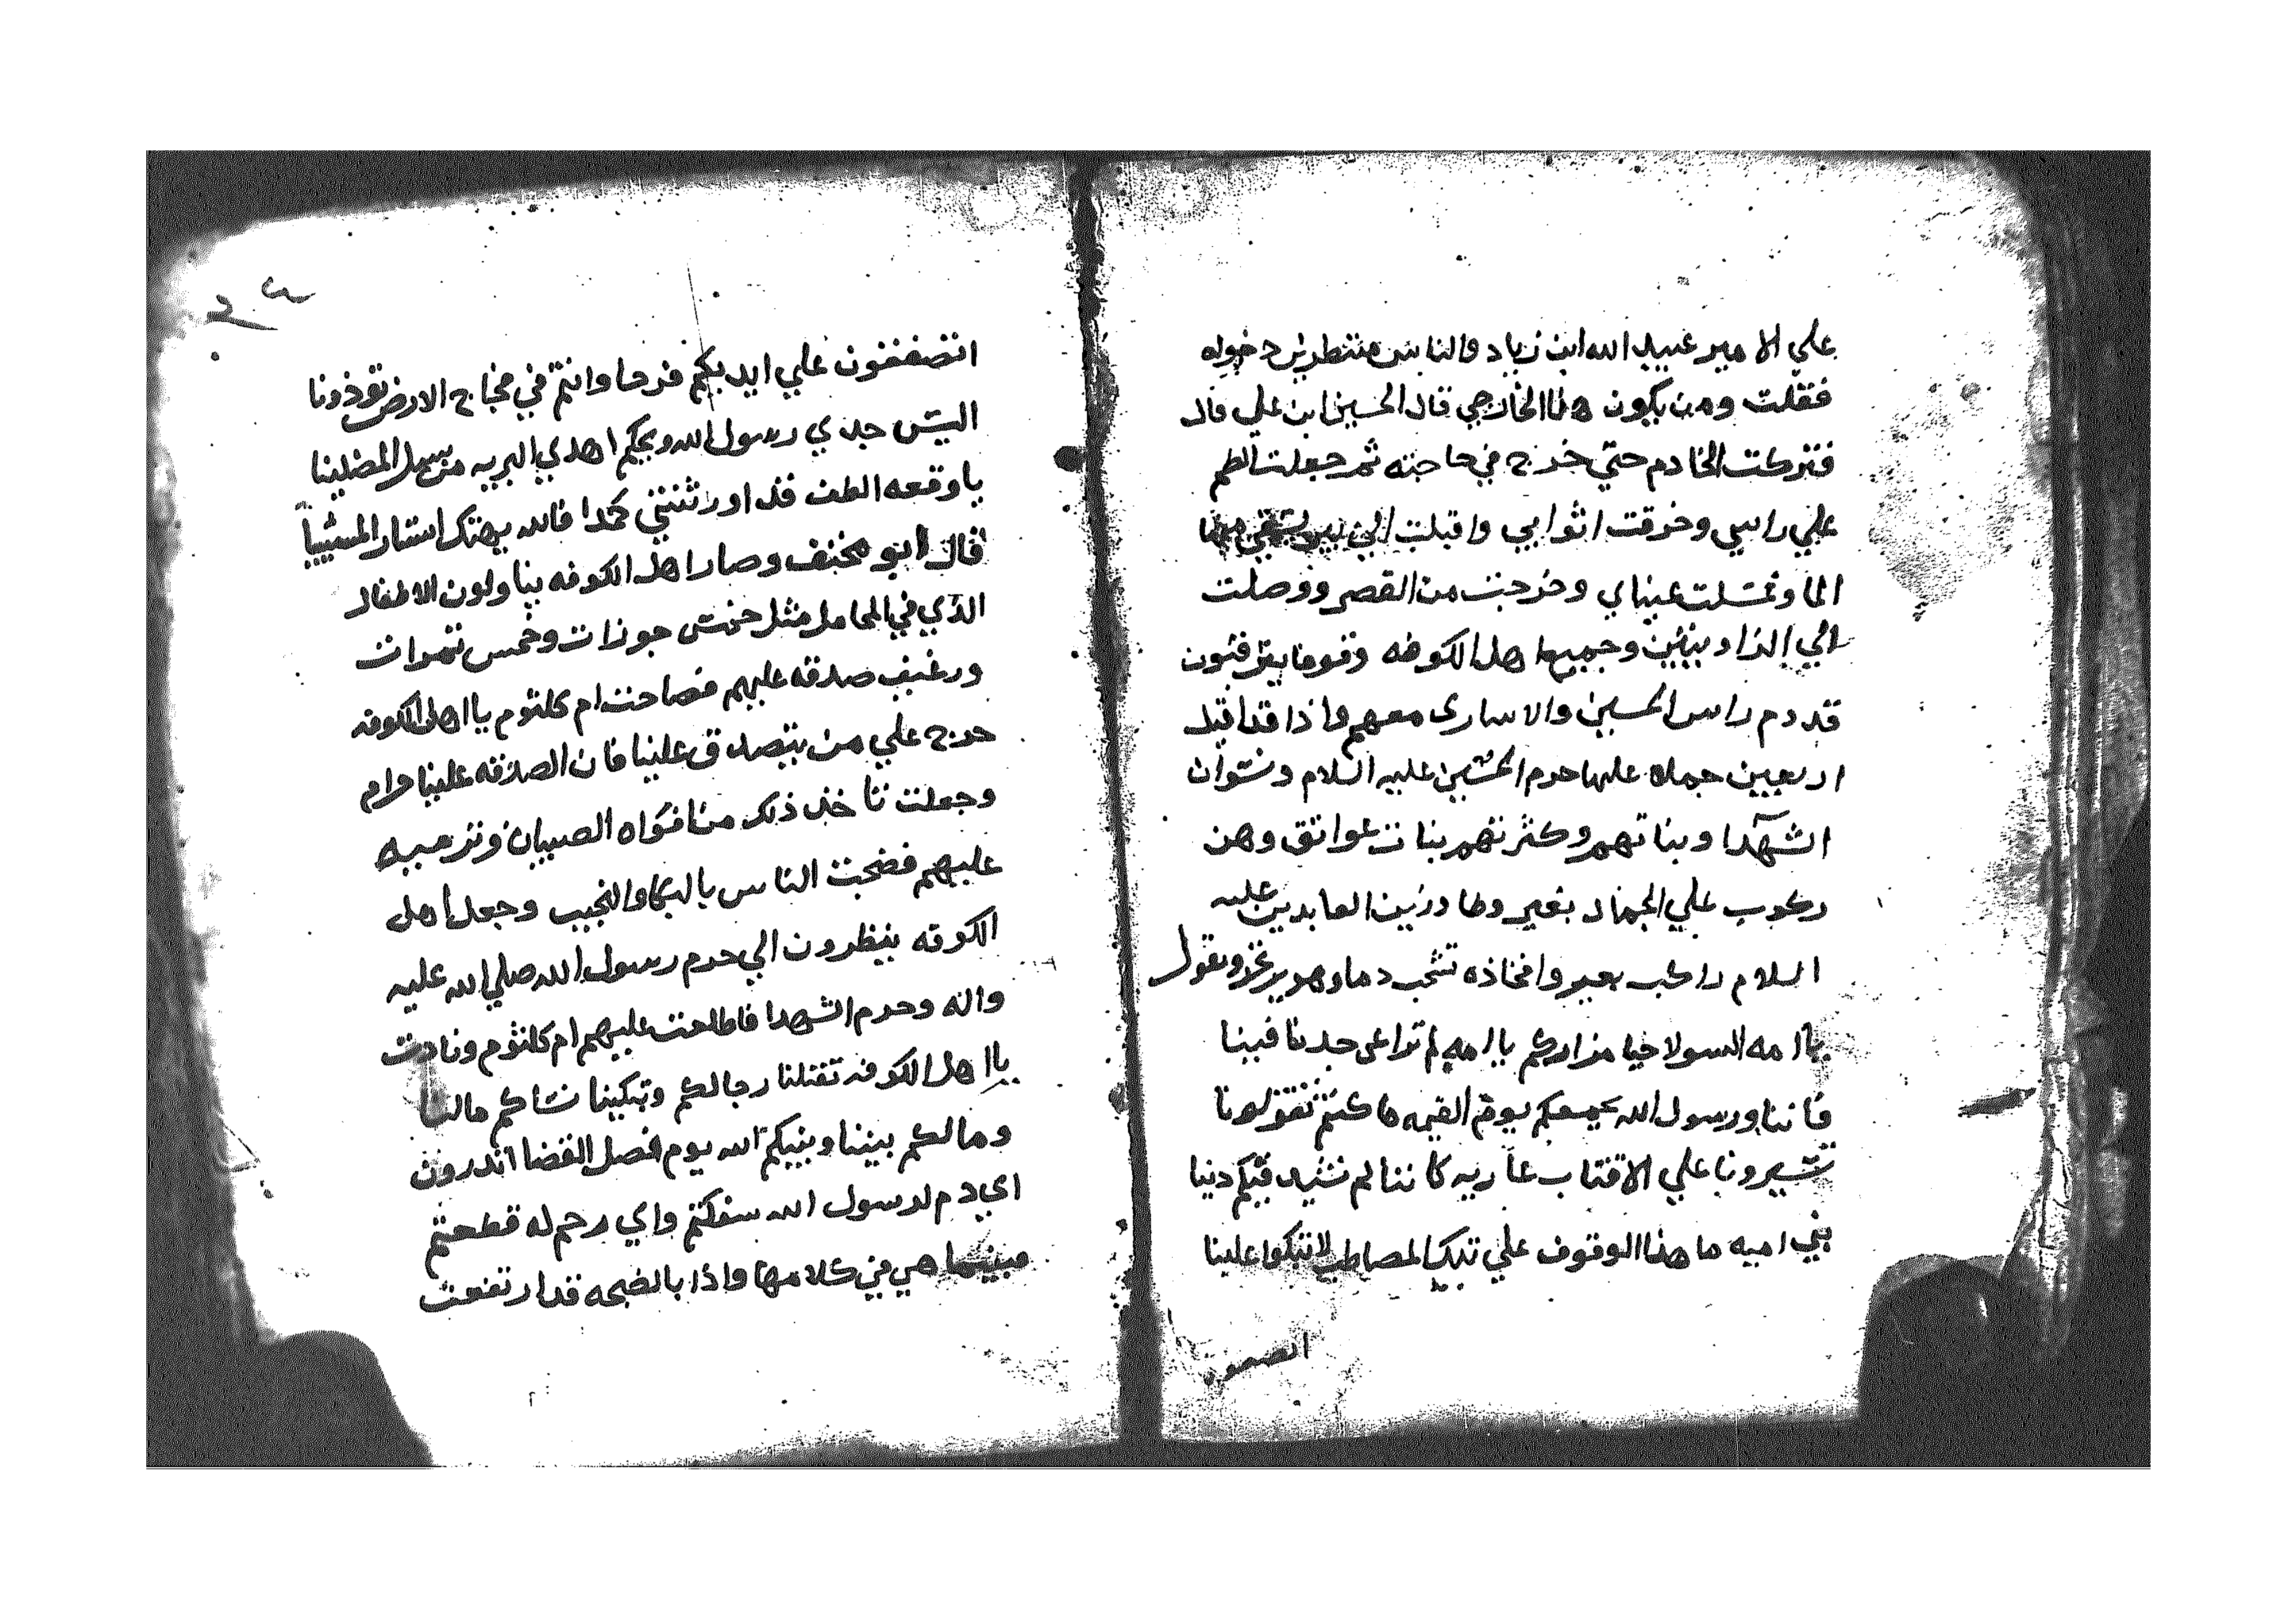 علي الامير عبيد الله ابن زياد والناس منتظرين دخوله
فقلت ومن يكون هذا الخارجي قال الحسين ابن علي قال
فتركت الخادم حتي خرج في حاجته ثم جعلت الطم
علي راسي وخرقت اثوابي واقبلت الي
الما وغسلت عيناي وخرجت من القصر ووصلت
الي وجميع اهل الكوفه وقوفا يترقبون
قدوم راس الحسين والاساري معهم واذا قد اقبل
اربعين جمله عليها حرم الحسين عليه السلام ونسوان
الشهدآ وبناتهم وكثرتهم بنات عواتق وهن
ركوب علي الجمال بغير وطا وزين العابدين عليه
السلام راكب بعير وافخاذه تشخب دما وهو يرتجز ويقول
ياامه السو لا حيا مزاركم ياامه لم تراعي جدنا فينا
فاننا ورسول الله يجمعكم يوم القيمه ما كنتم تقولونا
تسيرونا علي الاقتاب عاريه كاننا لم نشيد فيكم دينا
بني اميه ما هذا الوقوف علي تلك المصاطب لا تبكوا علينا
اتصفقون علي ايديكم فرحا وانتم في فجاج الارض توذونا
اليس جدي رسول الله ويحكم اهدي البريه من سبل المضلينا
ياوقعه الطف قد اورثتني كمدا فالله يهتك استار المسيئينا
قال ابو مخنف وصار اهل الكوفه يناولون الاطفال
الذي في المحامل مثل خمس جوزات وخمس تمرات
ورغيف صدقه عليهم فصاحت ام كلثوم ياا اهل الكوفه
حرج علي من يتصدق علينا فان الصدقه علينا حرام
وجعلت تاخذ ذلك من افواه الصبيان وترميه
عليهم فضجت الناس بالبكا والنحيب وجعل اهل
الكوفه ينظرون الي حرم رسول الله صلي الله عليه
واله وحرم الشهدا فاطلعت عليهم ام كلثوم ونادت
ياا اهل الكوفه تقتلنا رجالكم وتبكينا نساكم مالنا
ومالكم بيننا وبينكم الله يوم فصل القضا اتدرون
اي دم لرسول الله سفكتم واي رحم له قطعتم
فبينما هي في كلامها واذا بالضجه قد ارتفعت